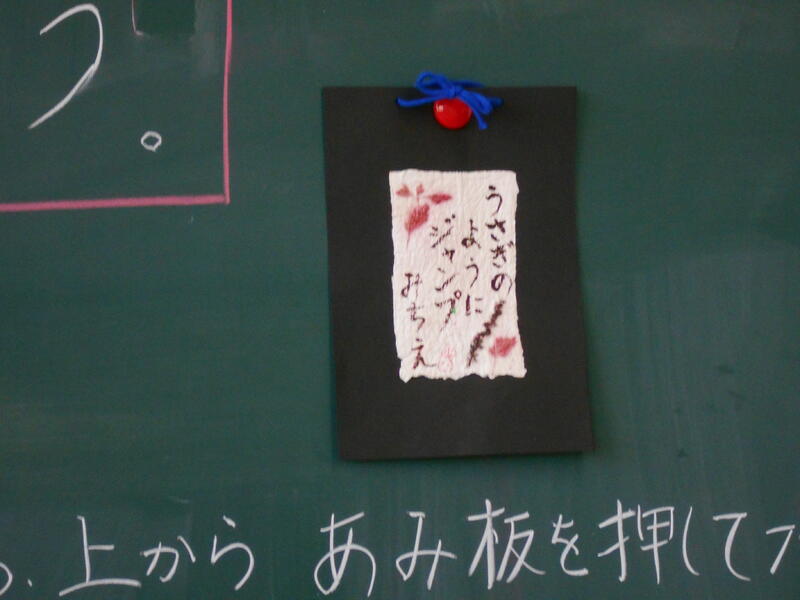 う。
うさぎの
ように
ジャンプ
みちえ
上から あみ板を押して